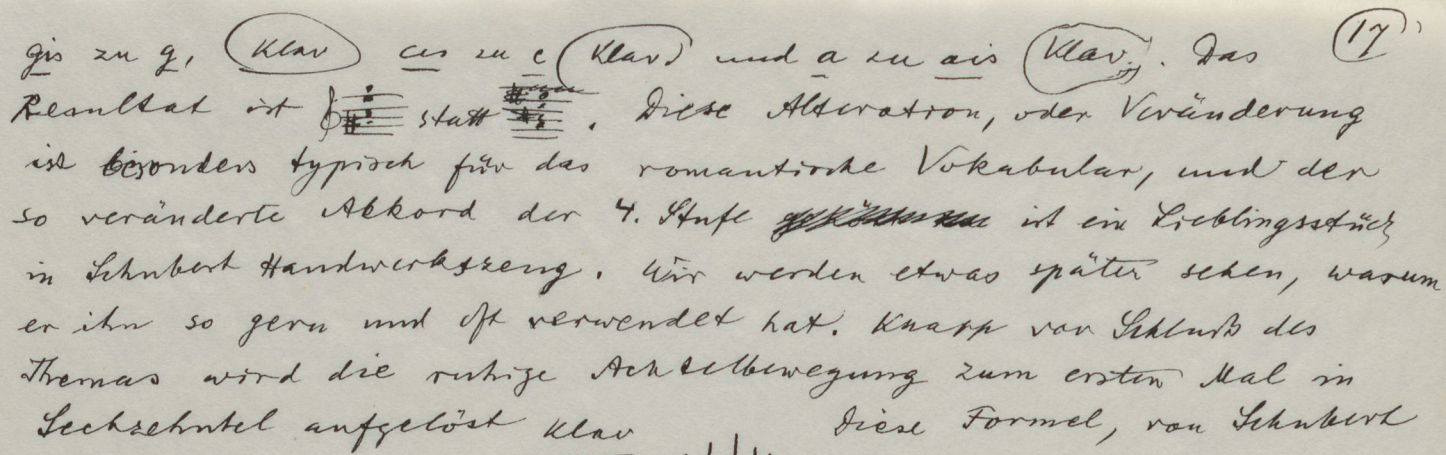 gis zu g, Klav cis zu c Klav und a zu ais Klav. Das 17
Resultat ist statt . Diese Alteration, oder Veränderung
ist besonders typisch für das romantische Vokabular, und der
so veränderte Akkord der 4. Stufe ist ein Lieblingsstück
in Schubert Handwerkszeug. Wir werden etwas später sehen, warum
er ihn so gern und oft verwendet hat. Knapp vor Schluß des
Themas wird die ruhige Achtelbewegung zum ersten Mal in
Sechzehntel aufgelöst Klav Diese Formel, von Schubert